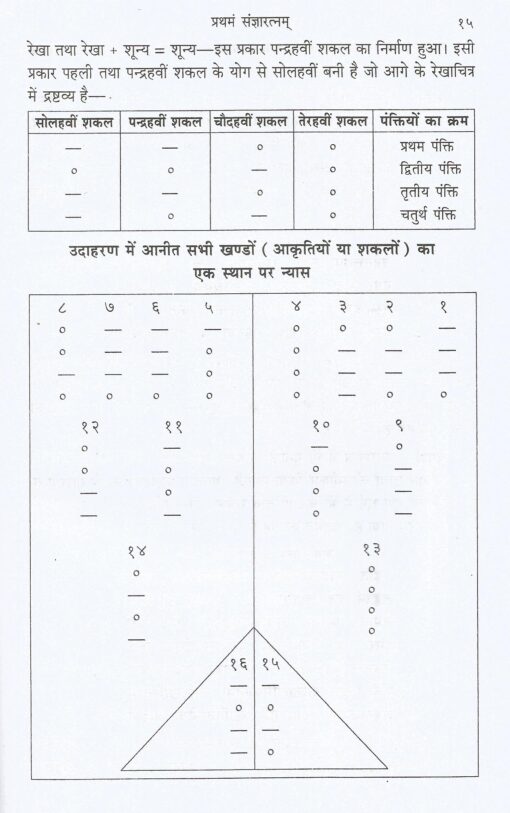 प्रथमं संज्ञारत्नम् १५
रेखा तथा रेखा + शून्य = शून्य—इस प्रकार पन्द्रहवीं शकल का निर्माण हुआ। इसी
प्रकार पहली तथा पन्द्रहवीं शकल के योग से सोलहवीं बनी है जो आगे के रेखाचित्र
में द्रष्टव्य है—
सोलहवीं शकल पन्द्रहवीं शकल चौदहवीं शकल तेरहवीं शकल पंक्तियों का क्रम
— — ० ० प्रथम पंक्ति
० ० — ० द्वितीय पंक्ति
— — ० ० तृतीय पंक्ति
— ० — ० चतुर्थ पंक्ति
उदाहरण में आनीत सभी खण्डों ( आकृतियों या शकलों ) का
एक स्थान पर न्यास
८ ७ ६ ५ ४ ३ २ १
० — — — ० ० ० —
० — — ० ० — — —
— — — ० ० — — —
० ० ० ० ० — ० ०
१२ ११ १० ९
० — — ०
० ० ० —
— ० ० —
— — ० —
१४ १३
० ०
— ०
० ०
— ०
१६ १५
— —
० ०
— —
— ०